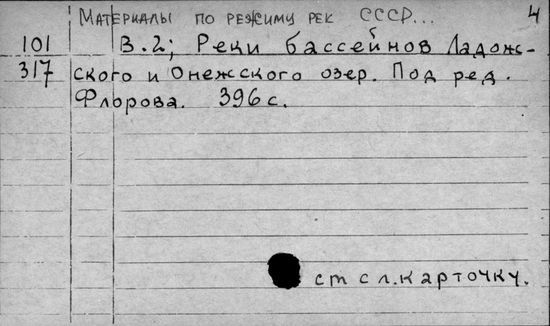 Материалы по режиму рек СССР... 4
101 В.2; Реки бассейнов Ладож-
317 ского и Онежского озер. Под ред.
Флорова. 396 с.
см сл. карточку.